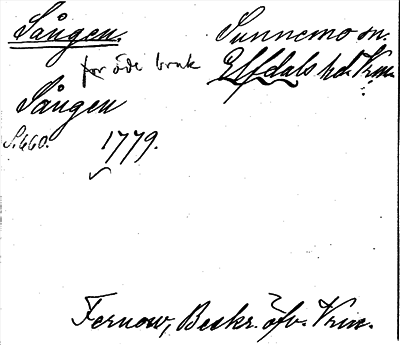 Sången.
Sunnemo sn.
för öde bruk
Elfdals hd. Vrm.
Sången
S. 660.
1779.
Fernow, Beskr. öfv. Vrm.